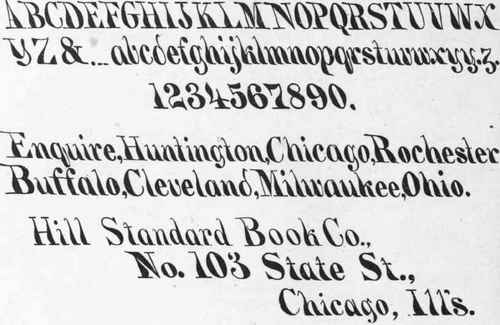 ABCDEFGHIJKLMNOPQRSTUVWX
YZ&...abcdefghijklmnopqrstuvwxyz.z.
1234567890.
Enquire,Huntington,Chicago,Rochester
Buffalo,Cleveland,Milwaukee,Ohio.
Hill Standard Book Co.,
No. 103 State St.,
Chicago, Ill's.